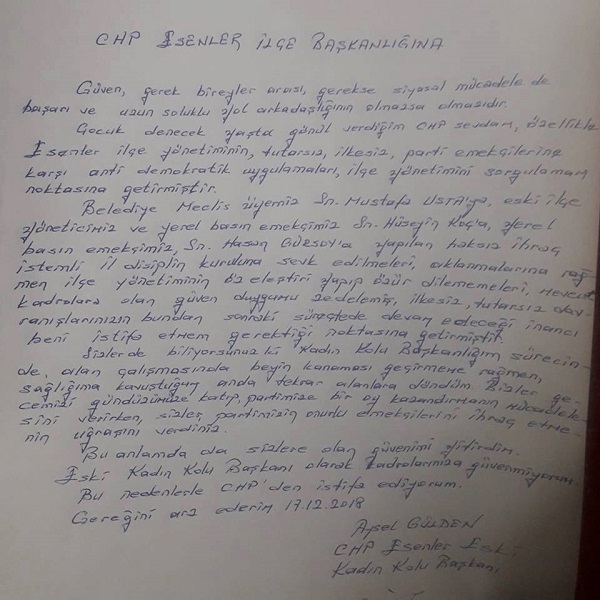 CHP ESENLER İLÇE BAŞKANLIĞINA
Güven, gerek bireyler arası, gerekse siyasal mücadele de
başarı ve uzun soluklu yol arkadaşlığının olmazsa olmasıdır.
Çocuk denecek yaşta gönül verdiğim CHP sevdam, özellikle
Esenler ilçe yönetiminin, tutarsız, ilkesiz, parti emekçilerine
karşı anti demokratik uygulamaları, ilçe yönetimini sorgulamam
noktasına getirmiştir.
Belediye Meclis üyemiz Sn. Mustafa USTA'ya, eski ilçe
yöneticimiz ve yerel basın emekçimiz Sn. Hüseyin Koç'a, yerel
basın emekçimiz, Sn. Hasan GÜRSOY'a yapılan haksız ihraç
istemli il disiplin kuruluna sevk edilmeleri, aklanmalarına rağ-
men ilçe yönetiminin öz eleştiri yapıp özür dilememeleri, mevcut
kadrolara olan güven duygumu zedelemiş, ilkesiz, tutarsız dav-
ranışlarınızın bundan sonraki süreçtede devam edeceği inancı
beni istifa etmem gerektiği noktasına getirmiştir.
Sizlerde biliyorsunuz ki Kadın Kolu Başkanlığım sürecin-
de, alan çalışmasında beyin kanaması geçirmeme rağmen,
sağlığıma kavuştuğum anda tekrar alanlara döndüm. Bizler ge-
cemizi gündüzümüze katıp, partimize bir oy kazandırmanın mücadele-
sini verirken, sizler, partimizin onurlu emekçilerini ihraç etme-
nin uğraşını verdiniz.
Bu anlamda da sizlere olan güvenimi yitirdim.
Eski Kadın Kolu Başkanı olarak kadrolarınıza güvenmiyorum.
Bu nedenlerle CHP'den istifa ediyorum.
Gereğini arz ederim 17.12.2018
Aysel GÜLDEN
CHP Esenler Eski
Kadın Kolu Başkanı